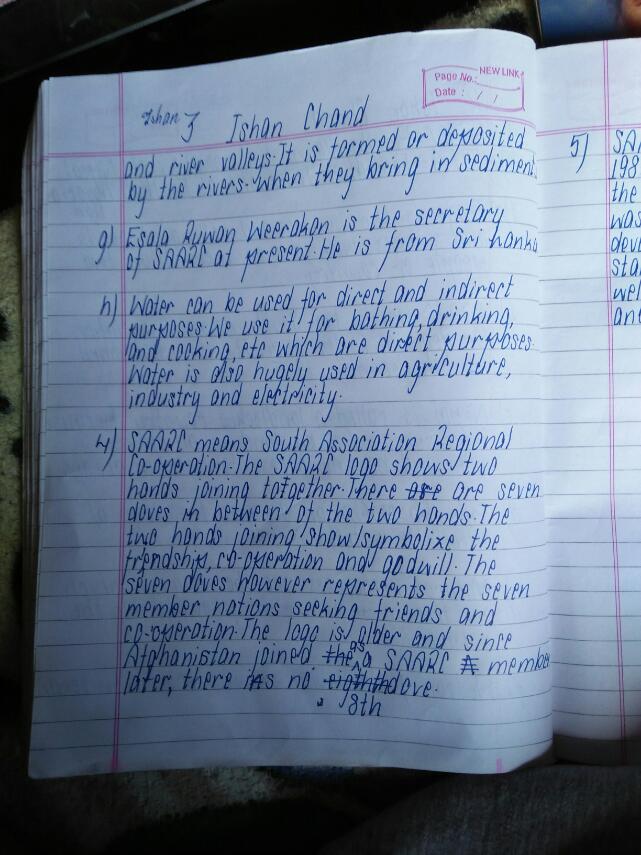 NEW LINK
Page No.:
Date : / /
Ishan 3 Ishan Chand
and river valleys. It is formed or deposited
by the rivers. When they bring in sediment
g) Esala Ruwan Weerakon is the secretary
of SAARC at present. He is from Sri Lanka
h) Water can be used for direct and indirect
purposes. We use it for bathing, drinking,
and cooking, etc which are direct purposes.
Water is also hugely used in agriculture,
industry and electricity.
4) SAARC means South Association Regional
Co-operation. The SAARC logo shows two
hands joining totgether. There are are seven
doves in between of the two hands. The
two hands joining show/symbolixe the
friendship, co-operation and godwill. The
seven doves however represents the seven
member nations seeking friends and
co-operation. The logo is older and since
Afghanistan joined the as a SAARC A member
later, there is no eighth dove.
8th
5) SAA
198
the
was
deve
sta
wel
ant